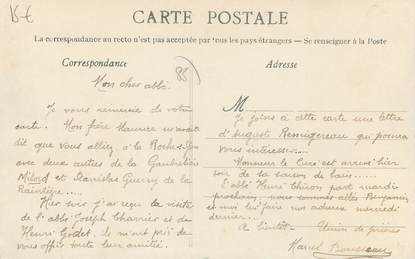 15€
CARTE POSTALE
La correspondance au recto n'est pas acceptée par tous les pays étrangers — Se renseigner à la Poste
Correspondance
85
Mon cher abbé.
Je vous remercie de votre
carte. Mon frère Maurice m'avait
dit que vous alliez à la Roche-s-Yon
avec deux autres de la
Milord et Stanislas Guerry de la
Hier soir j'ai reçu la visite
de l'abbé Joseph Charrier et de
Henri Godet. Ils m'ont prié de
vous offrir toute leur amitié.
Adresse
M
Je joins à cette carte une lettre
d'Auguste Remigereau qui pourra
vous intéresser...
Monsieur le Curé est arrivé hier
soir de sa saison de bains......
L'abbé Henri part mardi
prochain, nous sommes allés Benjamin
et moi lui faire nos adieux mercredi
dernier...
A bientôt — Union de prières
Marcel Rousseau